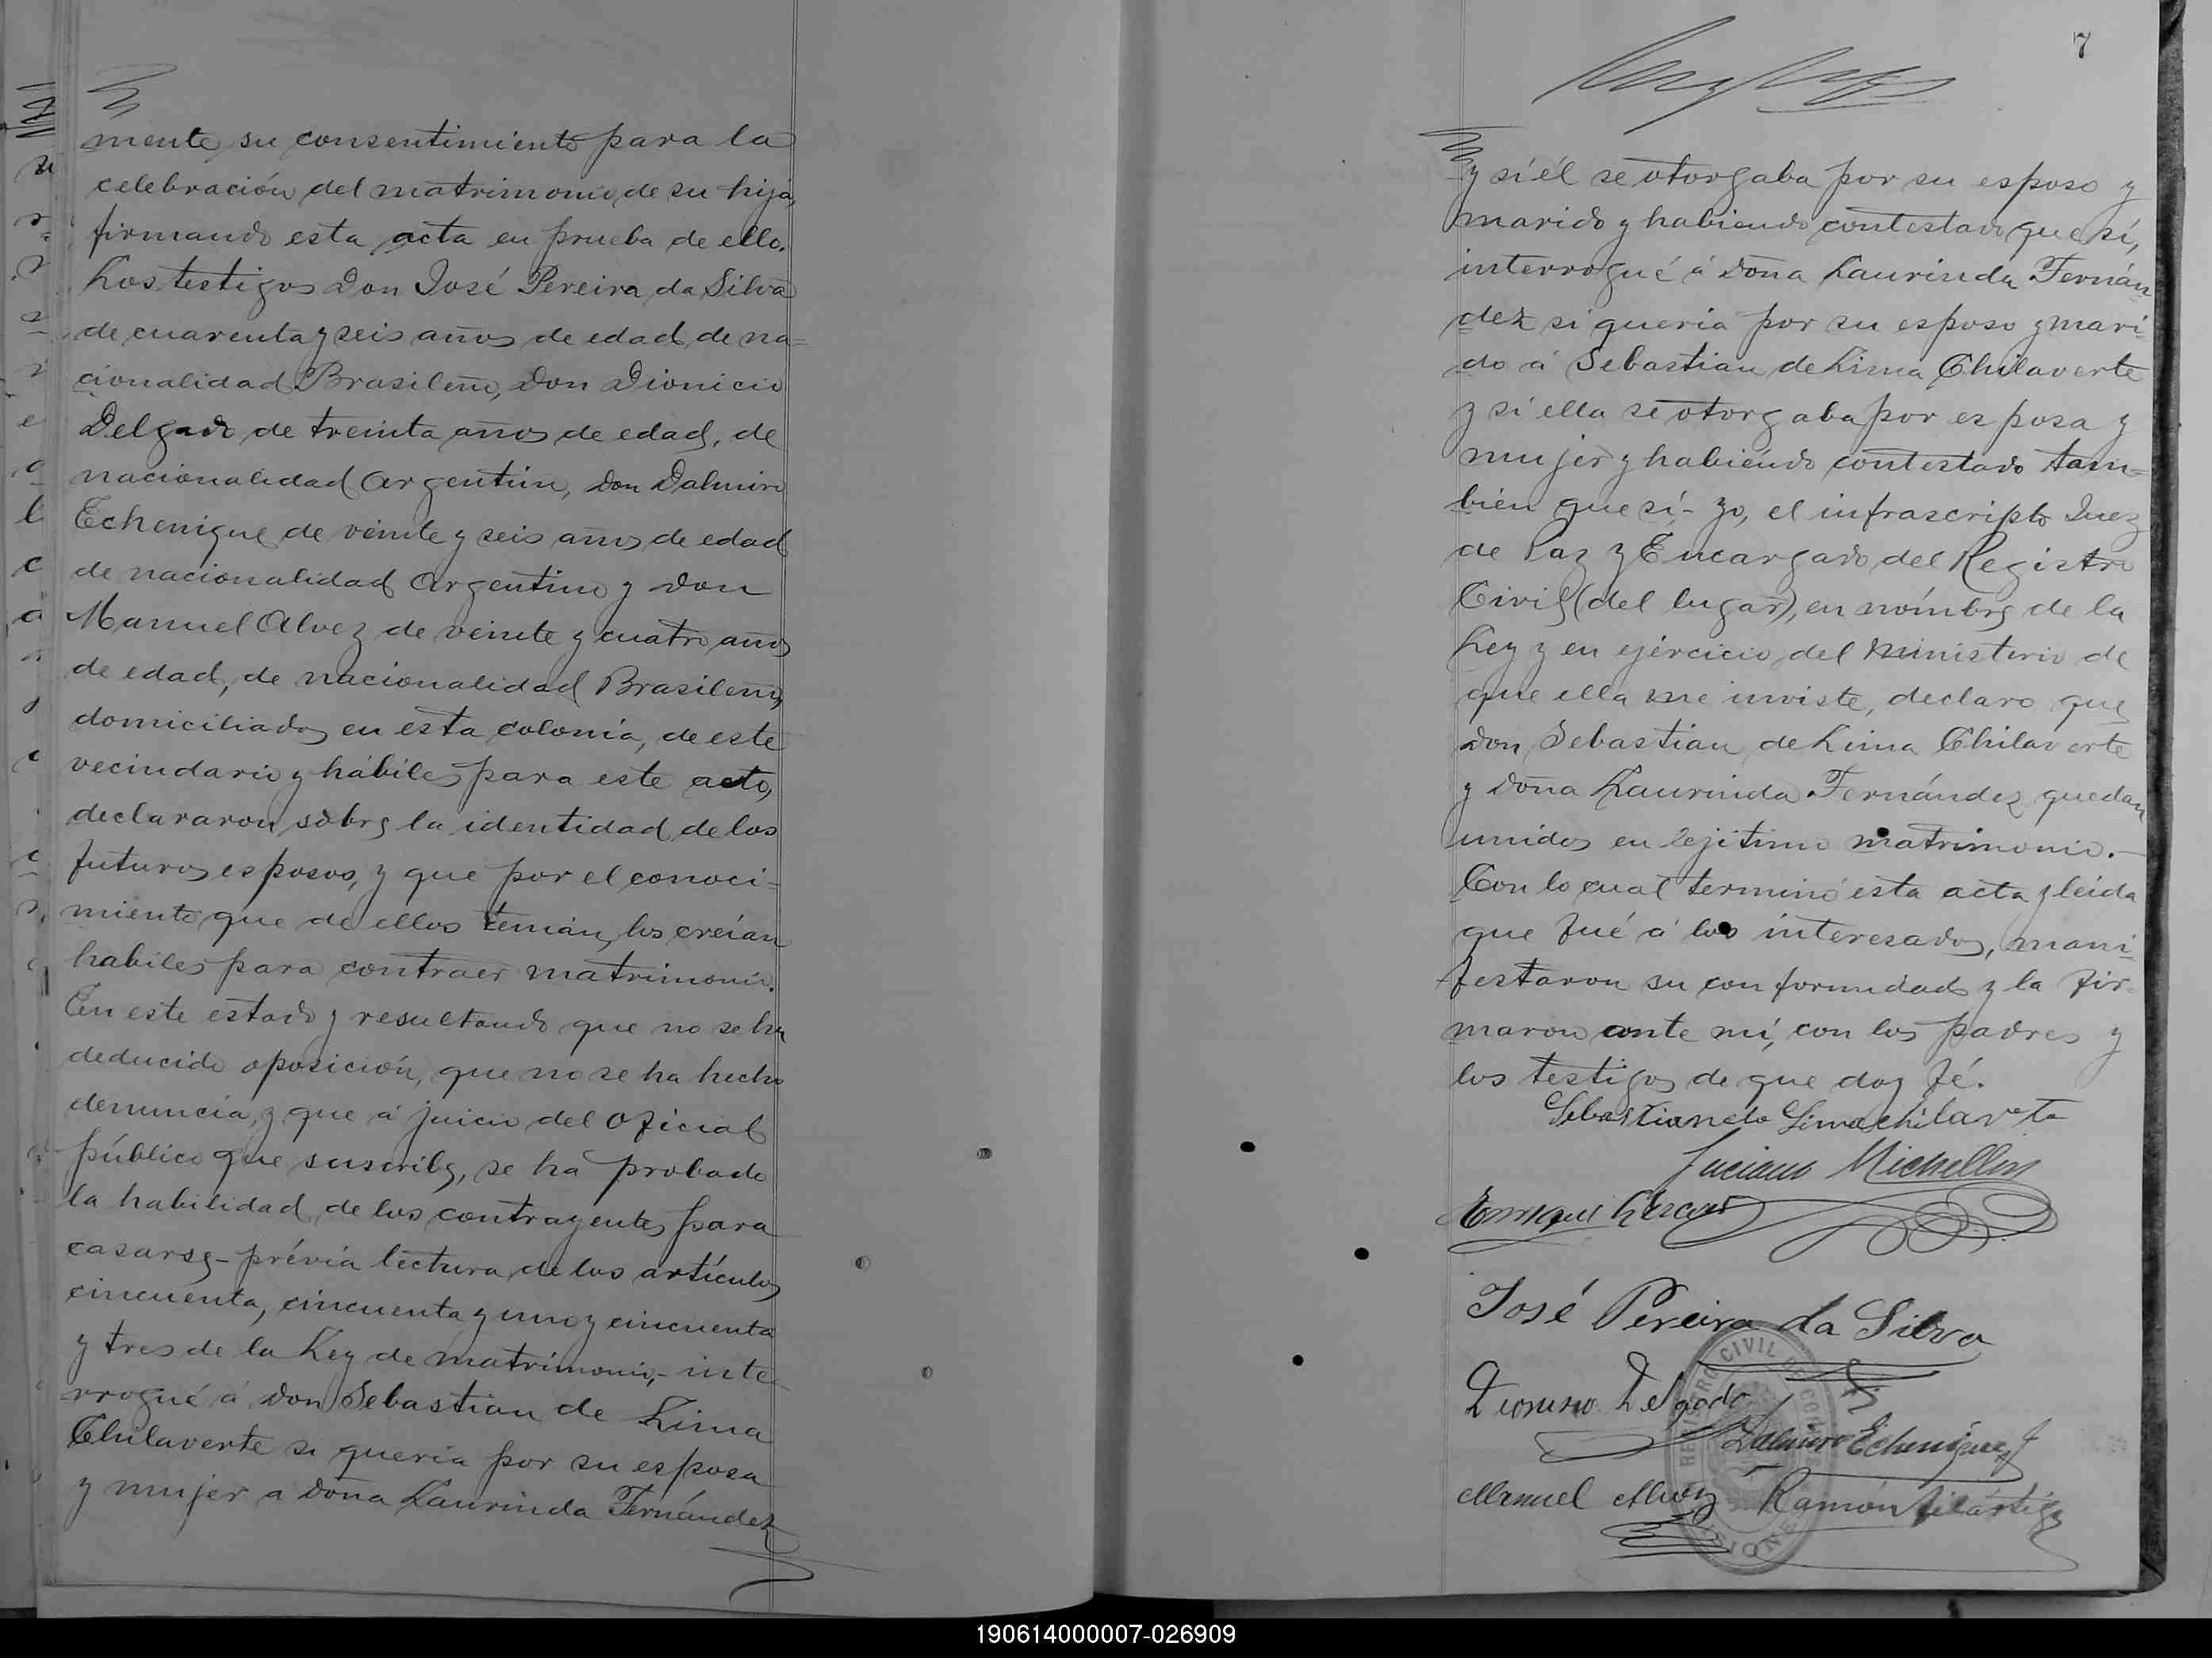 mente su consentimiento para la
celebración del matrimonio de su hija,
firmando esta acta en prueba de ello.
Los testigos Don José Pereira da Silva
de cuarenta y seis años de edad de na=
cionalidad Brasileño, Don Dionicio
Delgado de treinta años de edad, de
nacionalidad Argentino, Don Dalmiro
Echenique de veinte y seis años de edad
de nacionalidad Argentino y Don
Manuel Alvez de veinte y cuatro años
de edad, de nacionalidad Brasileño,
domiciliados en esta colonia, de este
vecindario y hábiles para este acto,
declararon sobre la identidad de los
futuros esposos, y que por el conoci=
miento que de ellos tenían, los creían
habiles para contraer matrimonio.
En este estado y resultando que no se ha
deducido oposición, que no se ha hecho
denuncia, y que á juicio del oficial
público que suscribe, se ha probado
la habilidad de los contrayentes para
casarse - prévia lectura de los artículos
cincuenta, cincuenta y uno y cincuenta
y tres de la Ley de matrimonio,- inte-
rrogué á Don Sebastian de Lima
Chilaverte si queria por su esposa
y mujer a Doña Laurinda Fernández
7
y si él se otorgaba por su esposo y
marido y habiendo contestado que sí,
interrogué á Doña Laurinda Fernán
dez si queria por su esposo y mari-
do á Sebastian de Lima Chilaverte
y si ella se otorgaba por esposa y
mujer y habiendo contestado tam=
bién que sí - yo, el infrascripto Juez
de Paz y Encargado del Registro
Civil (del lugar), en nómbre de la
Ley y en ejercicio del ministerio de
que ella me inviste, declaro que
Don Sebastian de Lima Chilaverte
y Doña Laurinda Fernández quedan
unidos en lejitimo matrimonio.-
Con lo cual terminó esta acta y leida
que fué á los interesados, mani-
festaron su conformidad y la fir-
maron ante mí, con los padres y
los testigos de que doy fé.
Sebastian de Lima chilavete
Luciano Michellon
Enrique
José Pereira da Silva
Dionisio Delgado
Dalmiro Echenique
Manuel Alvez Ramón Filártiga
REGISTRO CIVIL DE
MISIONES
190614000007-026909